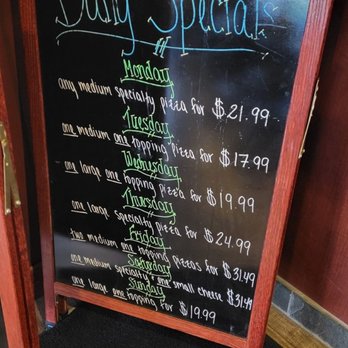 Daily Specials
Monday
any medium specialty pizza for $21.99
Tuesday
one medium one topping pizza for $17.99
Wednesday
one large one topping pizza for $19.99
Thursday
one large specialty pizza for $24.99
Friday
two medium one topping pizzas for $31.49
Saturday
one medium specialty & one small cheese $31.49
Sunday
one large one topping for $19.99